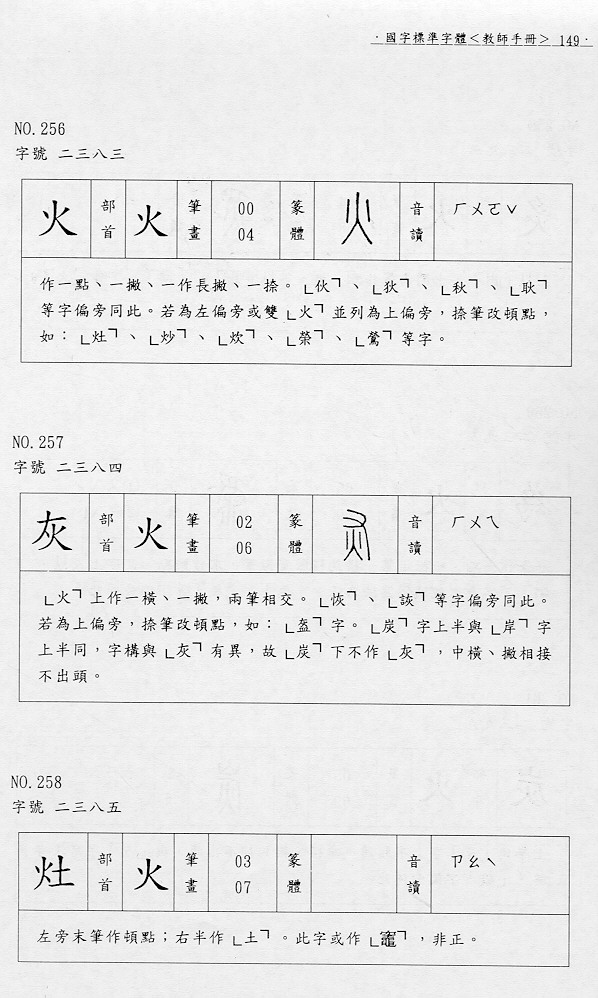 ·國字標準字體＜教師手冊＞ 149·
NO.256
字號 二三八三
火 部首 火 筆畫 00 04 篆體 音讀 ㄏㄨㄛˇ
作一點、一撇、一作長撇、一捺。「伙」、「狄」、「秋」、「耿」
等字偏旁同此。若為左偏旁或雙「火」並列為上偏旁，捺筆改頓點，
如：「灶」、「炒」、「炊」、「榮」、「鶯」等字。
NO.257
字號 二三八四
灰 部首 火 筆畫 02 06 篆體 音讀 ㄏㄨㄟ
「火」上作一橫、一撇，兩筆相交。「恢」、「詼」等字偏旁同此。
若為上偏旁，捺筆改頓點，如：「盔」字。「炭」字上半與「岸」字
上半同，字構與「灰」有異，故「炭」下不作「灰」，中橫、撇相接
不出頭。
NO.258
字號 二三八五
灶 部首 火 筆畫 03 07 篆體 音讀 ㄗㄠˋ
左旁末筆作頓點；右半作「土」。此字或作「竈」，非正。